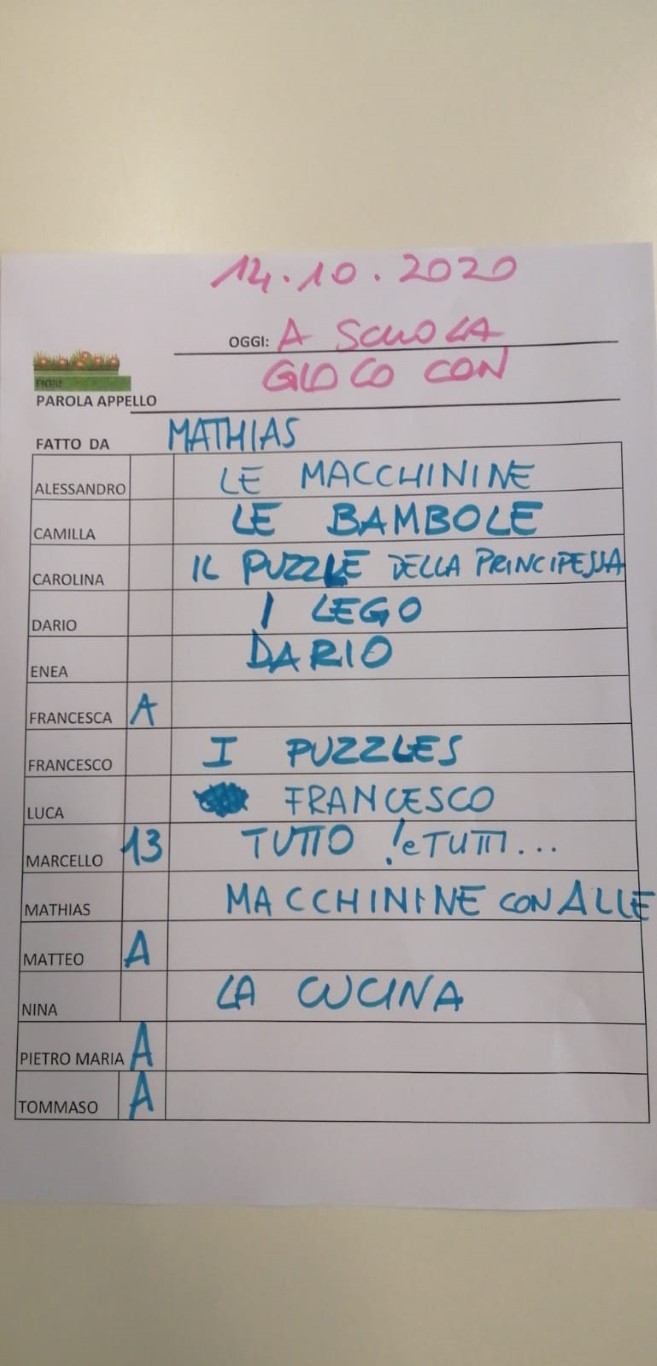 14.10.2020
OGGI: A SCUOLA
FIORI
GIOCO CON
PAROLA APPELLO
FATTO DA MATHIAS
ALESSANDRO LE MACCHININE
CAMILLA LE BAMBOLE
CAROLINA IL PUZZLE DELLA PRINCIPESSA
DARIO I LEGO
ENEA DARIO
FRANCESCA A
FRANCESCO I PUZZLES
LUCA FRANCESCO
MARCELLO 13 TUTTO ! e TUTTI...
MATHIAS MACCHININE CON ALLE
MATTEO A
NINA LA CUCINA
PIETRO MARIA A
TOMMASO A